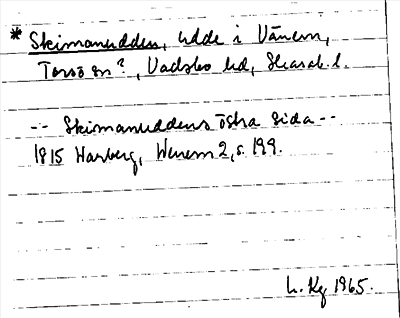 * Skimanudden, udde i Vänern,
Torsö sn?, Vadsbo hd, Skarab. l.
-- Skimanuddens östra Sida --
1815 Warberg, Wenern 2, s. 199.
L. Kg 1965.